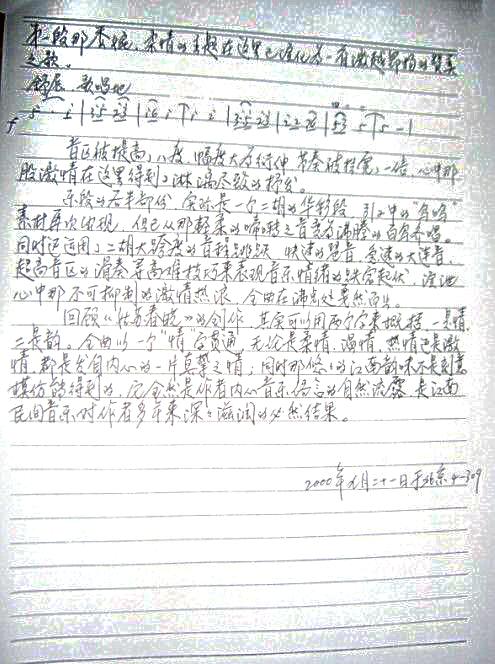 本段那委婉、柔情的主题在这里已准化为一首激越昂扬的赞美
之歌。
舒展 歌唱地
音区被提高八度，幅度大为衍伸，节奏被拉宽一倍，心中那
股激情在这里得到了淋漓尽致的抒发。
乐段的后半部份，实际是一个二胡的华彩段，引子中的"鸟鸣"
素材再次出现，但已从那轻柔的啼啭之音变为沸腾的百鸟齐唱。
同时还运用了二胡大跨度的音程跳跃、快速的琶音、急速的大连音、
超高音区的演奏等高难技巧来表现音乐情绪的跌宕起伏，
心中那不可抑制的激情热浪，全曲在沸点处戛然而止。
回顾《姑苏春晓》的创作，其实可以用两个字来概括，一是情，
二是韵。全曲以一个"情"字贯通，无论是柔情、温情、热情还是激
情，都是发自内心的一片真挚之情；同时那悠悠的江南韵味不是刻意
模仿能得到的，完全然是作者内心音乐语言的自然流露，是江南
民间音乐对作者多年来深深滋润的必然结果。
2000年 月二十一日于北京4-309